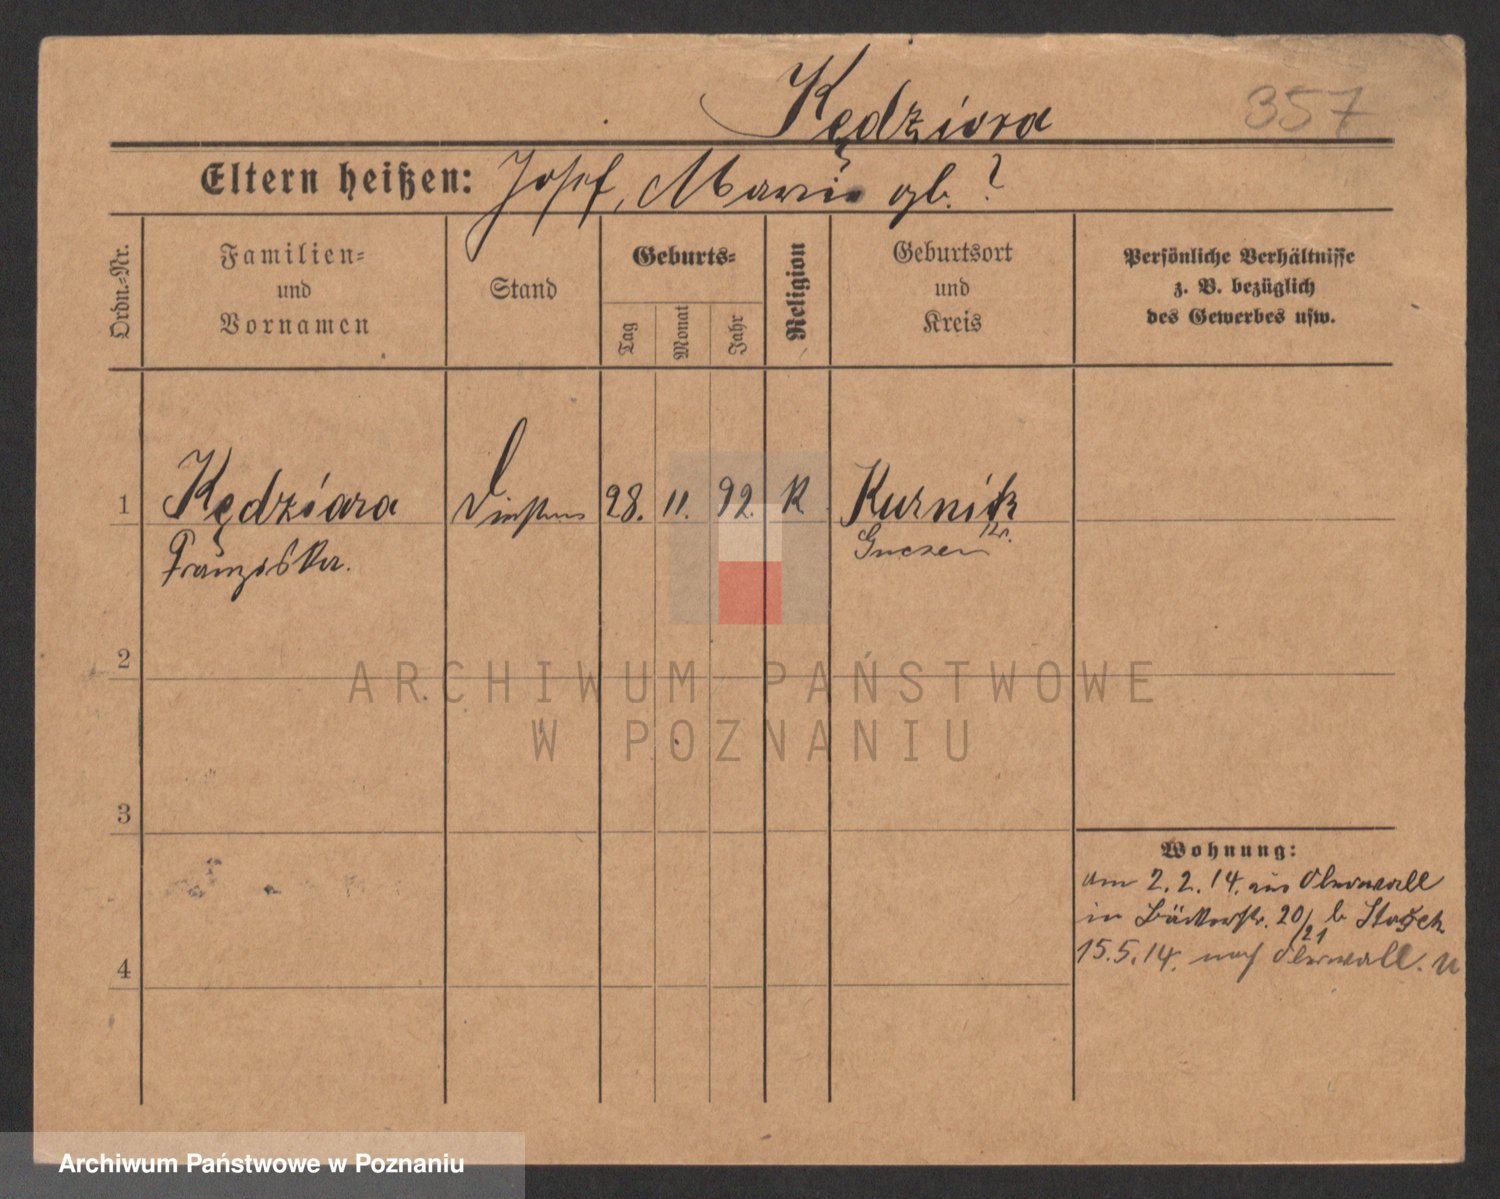 Kędziora
357
Eltern heißen: Josef, Maria gb. ?
Ordn.-Nr.
Familien-
und
Vornamen
Stand
Geburts-
Tag
Monat
Jahr
Religion
Geburtsort
und
Kreis
Persönliche Verhältnisse
z. B. bezüglich
des Gewerbes usw.
1 Kędziora 28. 11. 92. K Kurnik
Franziska. Gnesen Kr.
2
3
4
Wohnung:
am 2.2.14. aus Oberwall
in Bäckerstr. 20/21 b
15.5.14. nach Oberwall.
ARCHIWUM PAŃSTWOWE
W POZNANIU
Archiwum Państwowe w Poznaniu